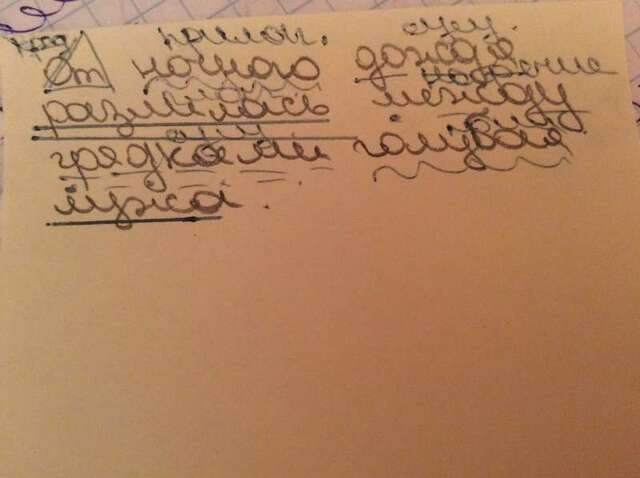 прилаг. сущ.
От ночного дождя
наречие
разлилась между
сущ
грядками голубая
лужа.